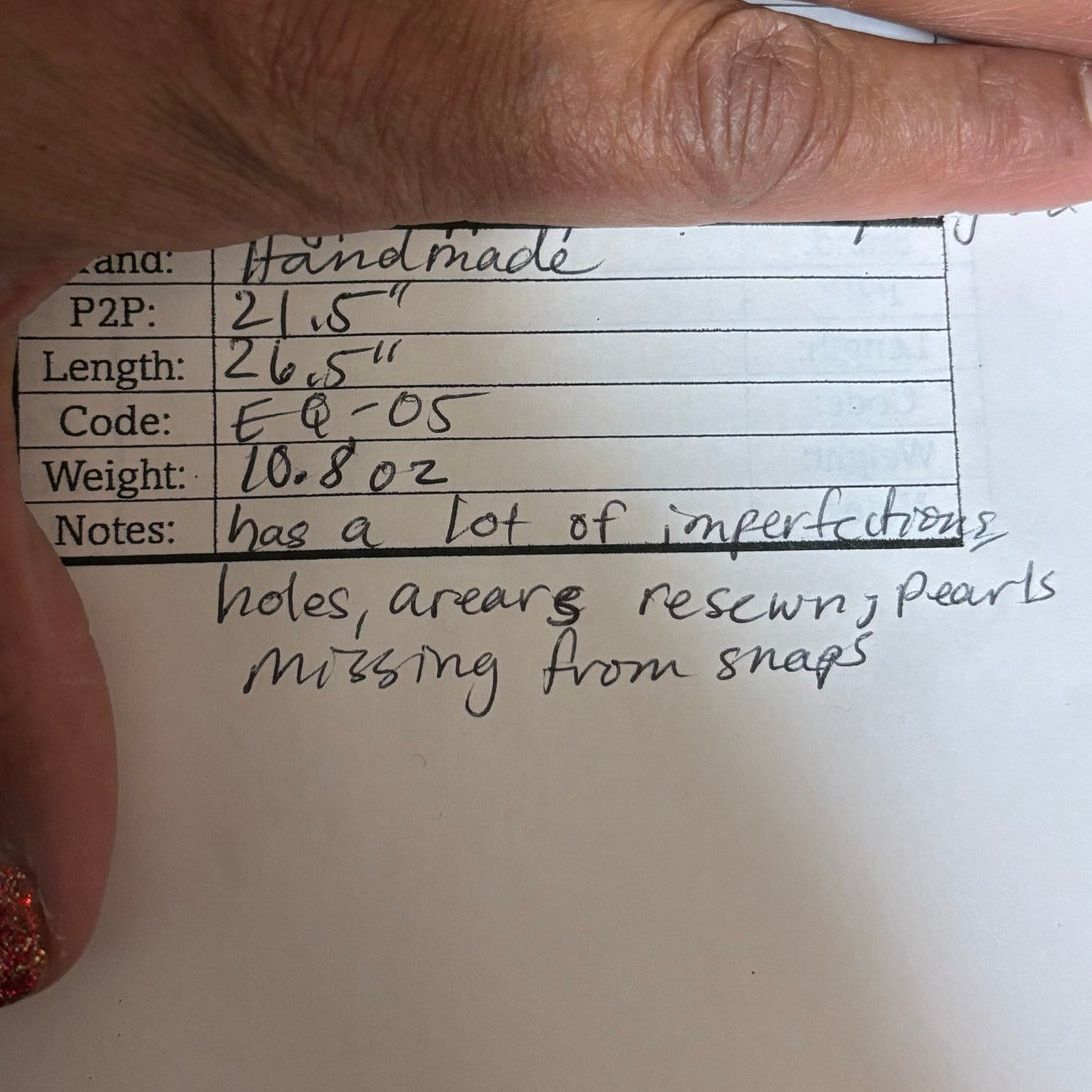 rand: Handmade
P2P: 21.5"
Length: 26.5"
Code: EQ-05
Weight: 10.8 oz
Notes: has a lot of imperfections
holes, arears resewn, pearls
missing from snaps